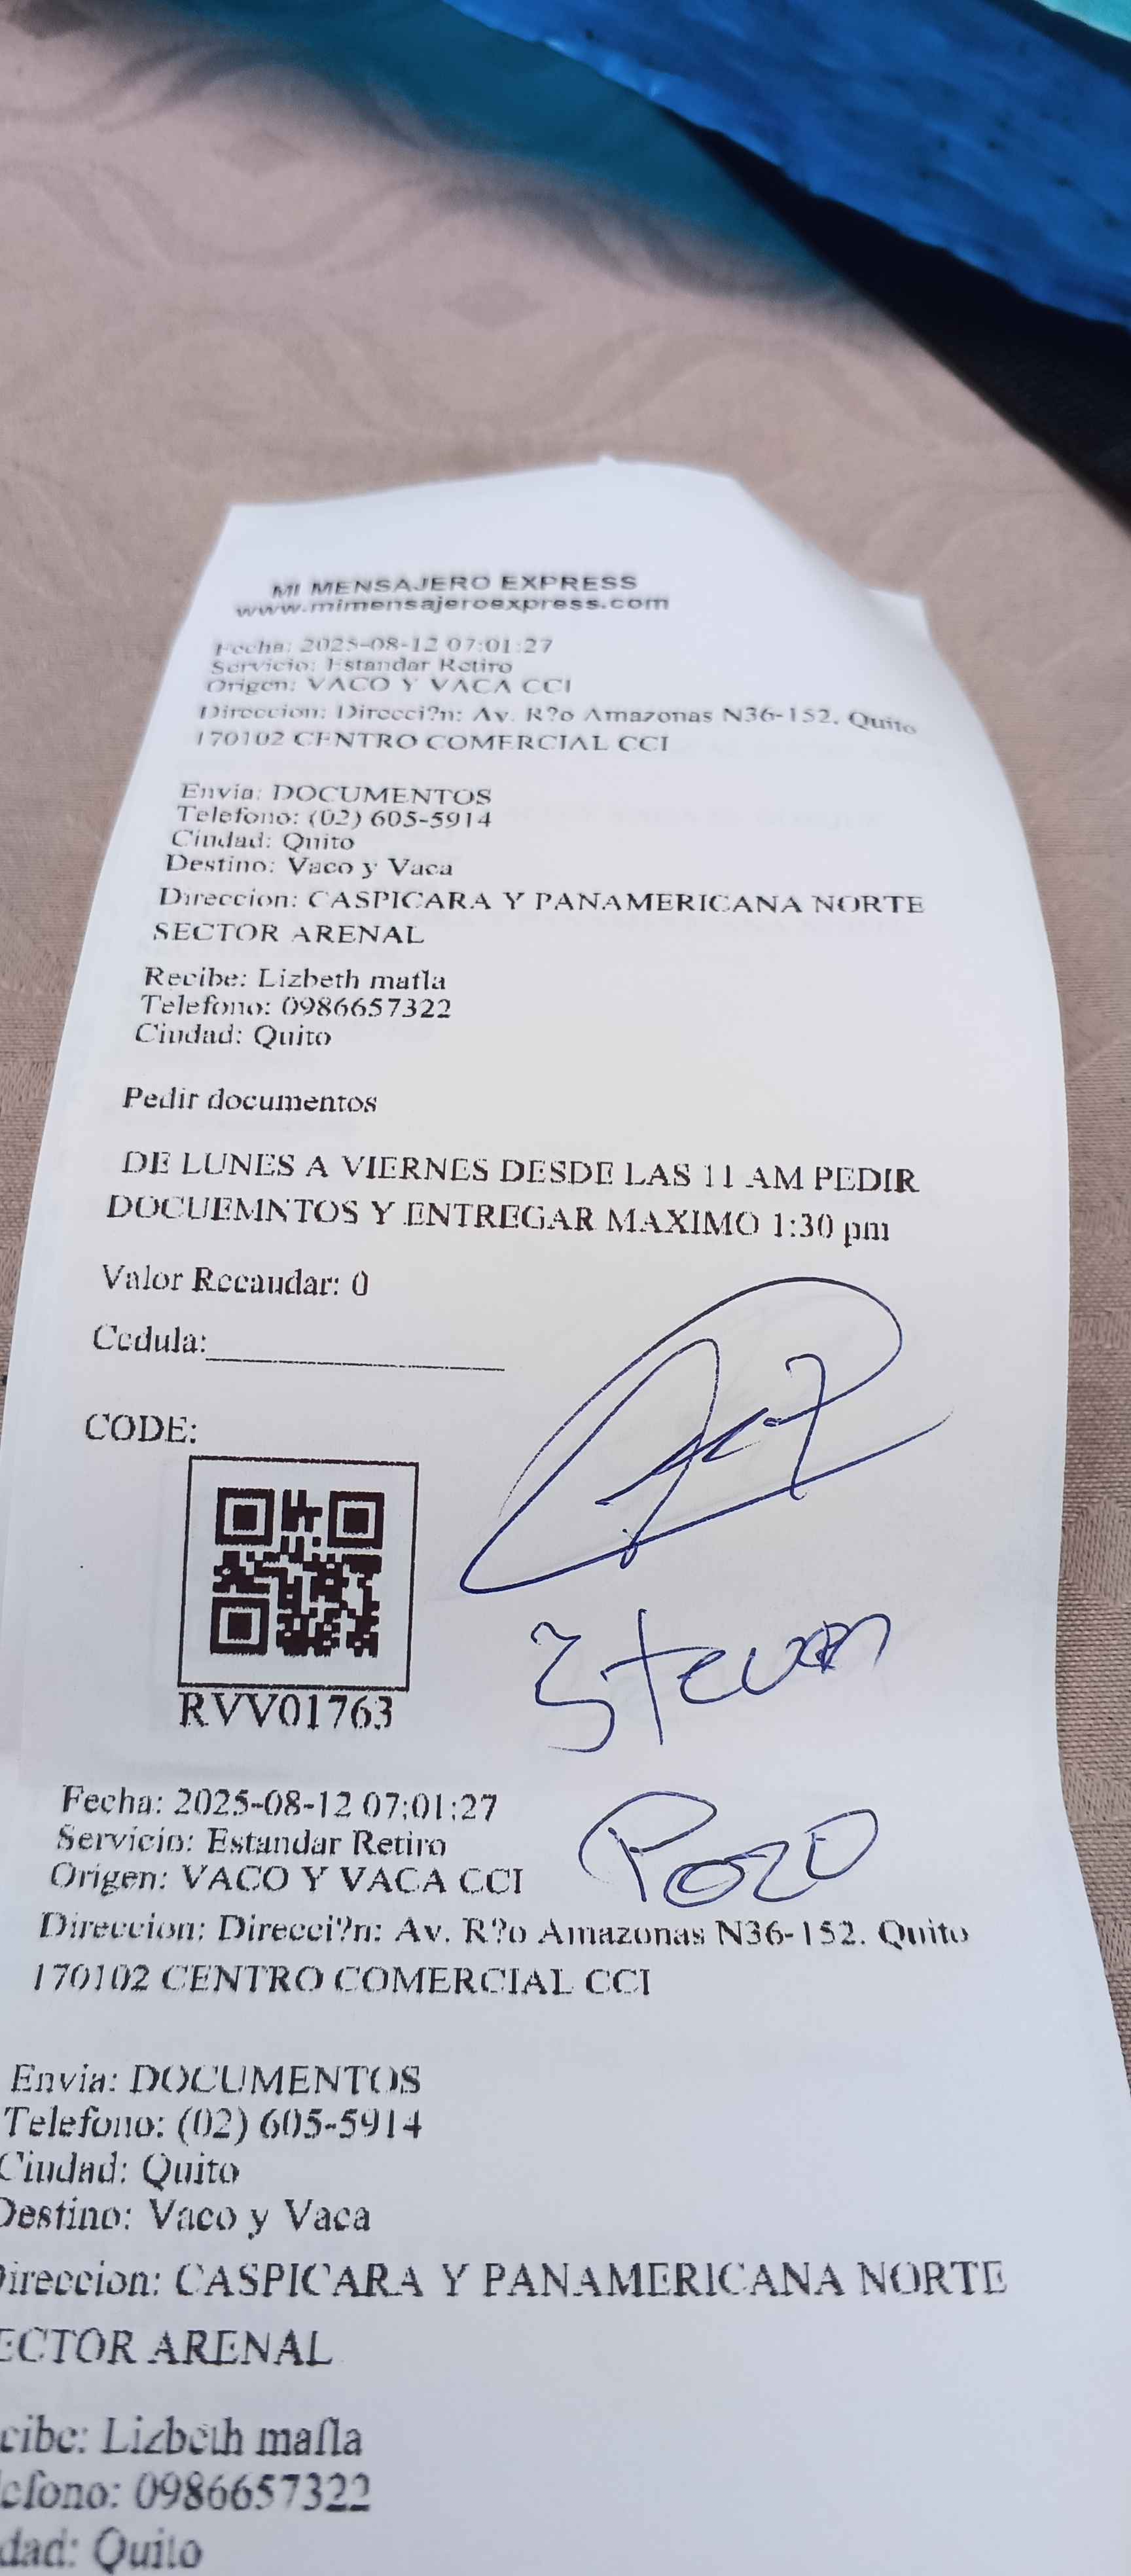 MI MENSAJERO EXPRESS
www.mimensajeroexpress.com
Fecha: 2025-08-12 07:01:27
Servicio: Estandar Retiro
Origen: VACO Y VACA CCI
Direccion: Direcci?n: Av. R?o Amazonas N36-152. Quito
170102 CENTRO COMERCIAL CCI
Envia: DOCUMENTOS
Telefono: (02) 605-5914
Ciudad: Quito
Destino: Vaco y Vaca
Direccion: CASPICARA Y PANAMERICANA NORTE
SECTOR ARENAL
Recibe: Lizbeth mafla
Telefono: 0986657322
Ciudad: Quito
Pedir documentos
DE LUNES A VIERNES DESDE LAS 11 AM PEDIR
DOCUEMNTOS Y ENTREGAR MAXIMO 1:30 pm
Valor Recaudar: 0
Cedula:
CODE:
RVV01763
Stevan
Pozo
Fecha: 2025-08-12 07:01:27
Servicio: Estandar Retiro
Origen: VACO Y VACA CCI
Direccion: Direcci?n: Av. R?o Amazonas N36-152. Quito
170102 CENTRO COMERCIAL CCI
Envia: DOCUMENTOS
Telefono: (02) 605-5914
Ciudad: Quito
Destino: Vaco y Vaca
Direccion: CASPICARA Y PANAMERICANA NORTE
ECTOR ARENAL
cibe: Lizbeth mafla
efono: 0986657322
dad: Quito